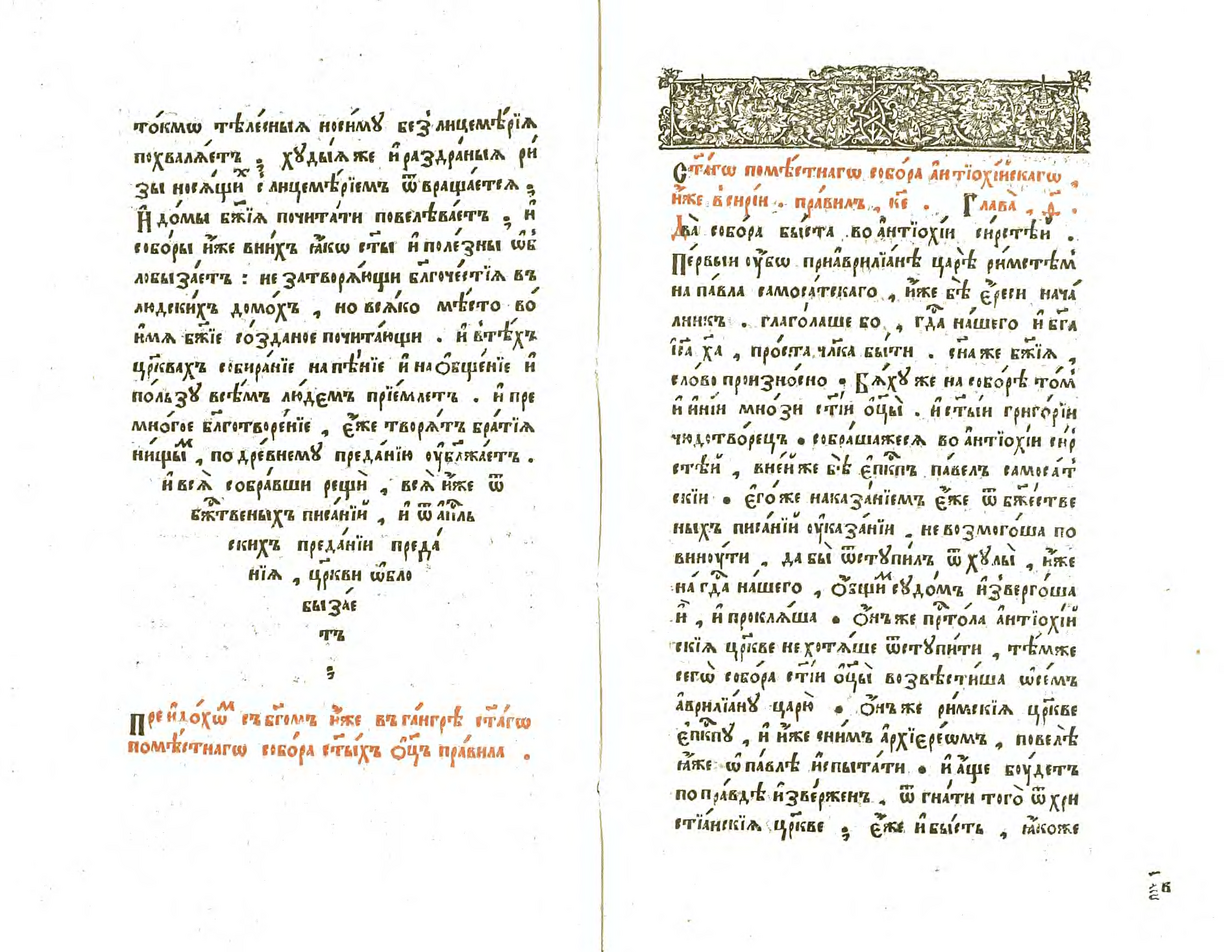 то́кмѡ тѣле́сныѧ носи́мꙋ без̾лицемѣ́рїѧ
похвалѧ́етъ . хꙋды́ѧже и҆раздра́ныѧ ри́
зы носѧ́щиⷯ с̾лицемѣ́рїемъ ѿвраща́етсѧ ;
И҆до́мы бж҃їѧ почита́ти повелѣва́етъ , и҆
собо́ры и҆́же вни́хъ ꙗ҆́кѡ ст҃ы и҆поле́зны ѡ҆б
лобыза́етъ : не затворѧ́ющи бл҃гоче́стїѧ въ
людски́хъ домо́хъ , но всѧ́ко мѣ́сто во
и҆́мѧ бж҃їе со́зданое почита́ющи . и҆втѣ́хъ
цр҃квахъ собира́нїе напѣ́нїе и҆нао҆бще́нїе и҆
по́льзꙋ всѣ́мъ лю́демъ прїе́млетъ . и҆пре
мно́гое бл҃готворе́нїе , є҆́же творѧ́тъ бра́тїѧ
ни́щыⷨ , подре́внемꙋ преда́нїю оу҆бл҃жа́етъ .
и҆всѧ̀ собра́вши рещѝ , всѧ̀ и҆́же ѿ
бжⷭ҇твеныхъ писа́нїй , и҆ ѿ а҆пⷭ҇ль
скихъ преда́нїи преда́
нїѧ , цр҃кви ѡ҆бло
быза́е
тъ
;
Преидо́хѡⷨ съ бг҃омъ и҆́же въ га́нгрѣ ст҃а́гѡ
помѣ́стнагѡ собо́ра ст҃ы́хъ ѻ҆ц҃ъ пра́вила .
Ст҃а́гѡ помѣ́стнагѡ собо́ра а҆нтїохі́йскагѡ ,
и҆́же в̾си́рїи . пра́вилъ , к҃е . Глава̀ , ѳ҃ .
Два̀ собо́ра бы́ста . во а҆нтїохі́и си́рстѣй .
Пе́рвыи оу҆́бѡ приа҆врилїа́нѣ царѣ̀ ри́мстѣⷨ
на па́вла самоса́тскаго , и҆́же бѣ̀ є҆́реси нача́
лникъ . глаго́лаше бо , гдⷭ҇а на́шего и҆ бг҃а
і҆с҃а хⷭ҇а , про́ста чл҃ка бы́ти . сн҃а же бж҃їѧ ,
сло́во произно́сно . Бѧ́хꙋ же на собо́рѣ то́ⷨ
и҆ и҆ні́и мно́зи ст҃і́и ѻ҆ц҃ы̀ . и҆ст҃ы́и григо́рїи
чюдотво́рецъ . собра́шажесѧ во а҆нтїохі́и си́р
стѣ́й , вне́йже бѣ̀ є҆пⷭ҇кпъ па́велъ самоса́т
скїи . є҆го́же наказа́нїемъ є҆́же ѿ бже́стве
ныхъ писа́нїй оу҆каза́нїи , не возмого́ша по
винꙋ́ти , да бы̀ ѿстꙋпи́лъ ѿ хꙋлы̀ , и҆́же
на гдⷭ҇а на́шего , ѻ҆́бщиⷨ сꙋдо́мъ и҆зверго́ша
и҆̀ , и҆ проклѧ́ша . Ѻ҆́нъже прⷭ҇то́ла а҆нтїохі́й
скїѧ цр҃кве не хотѧ́ше ѿстꙋпи́ти , тѣ́мже
сегѡ̀ собо́ра ст҃і́и ѻ҆ц҃ы̀ возвѣсти́ша ѡ҆се́мъ
а҆врилїа́нꙋ царю̀ . Ѻ҆́нъже ри́мскїѧ цр҃кве
є҆пⷭ҇кпꙋ , и҆ и҆́же сни́мъ а҆рхїере́ѡмъ , повелѣ̀
ꙗ҆́же ѡ҆ па́влѣ и҆спыта́ти . и҆ а҆́ще бꙋ́детъ
попра́вдѣ и҆зве́рженъ . ѿгна́ти того̀ ѿ хри
стїа́нскїѧ цр҃кве ; є҆́же и҆ бы́сть , ꙗ҆́коже